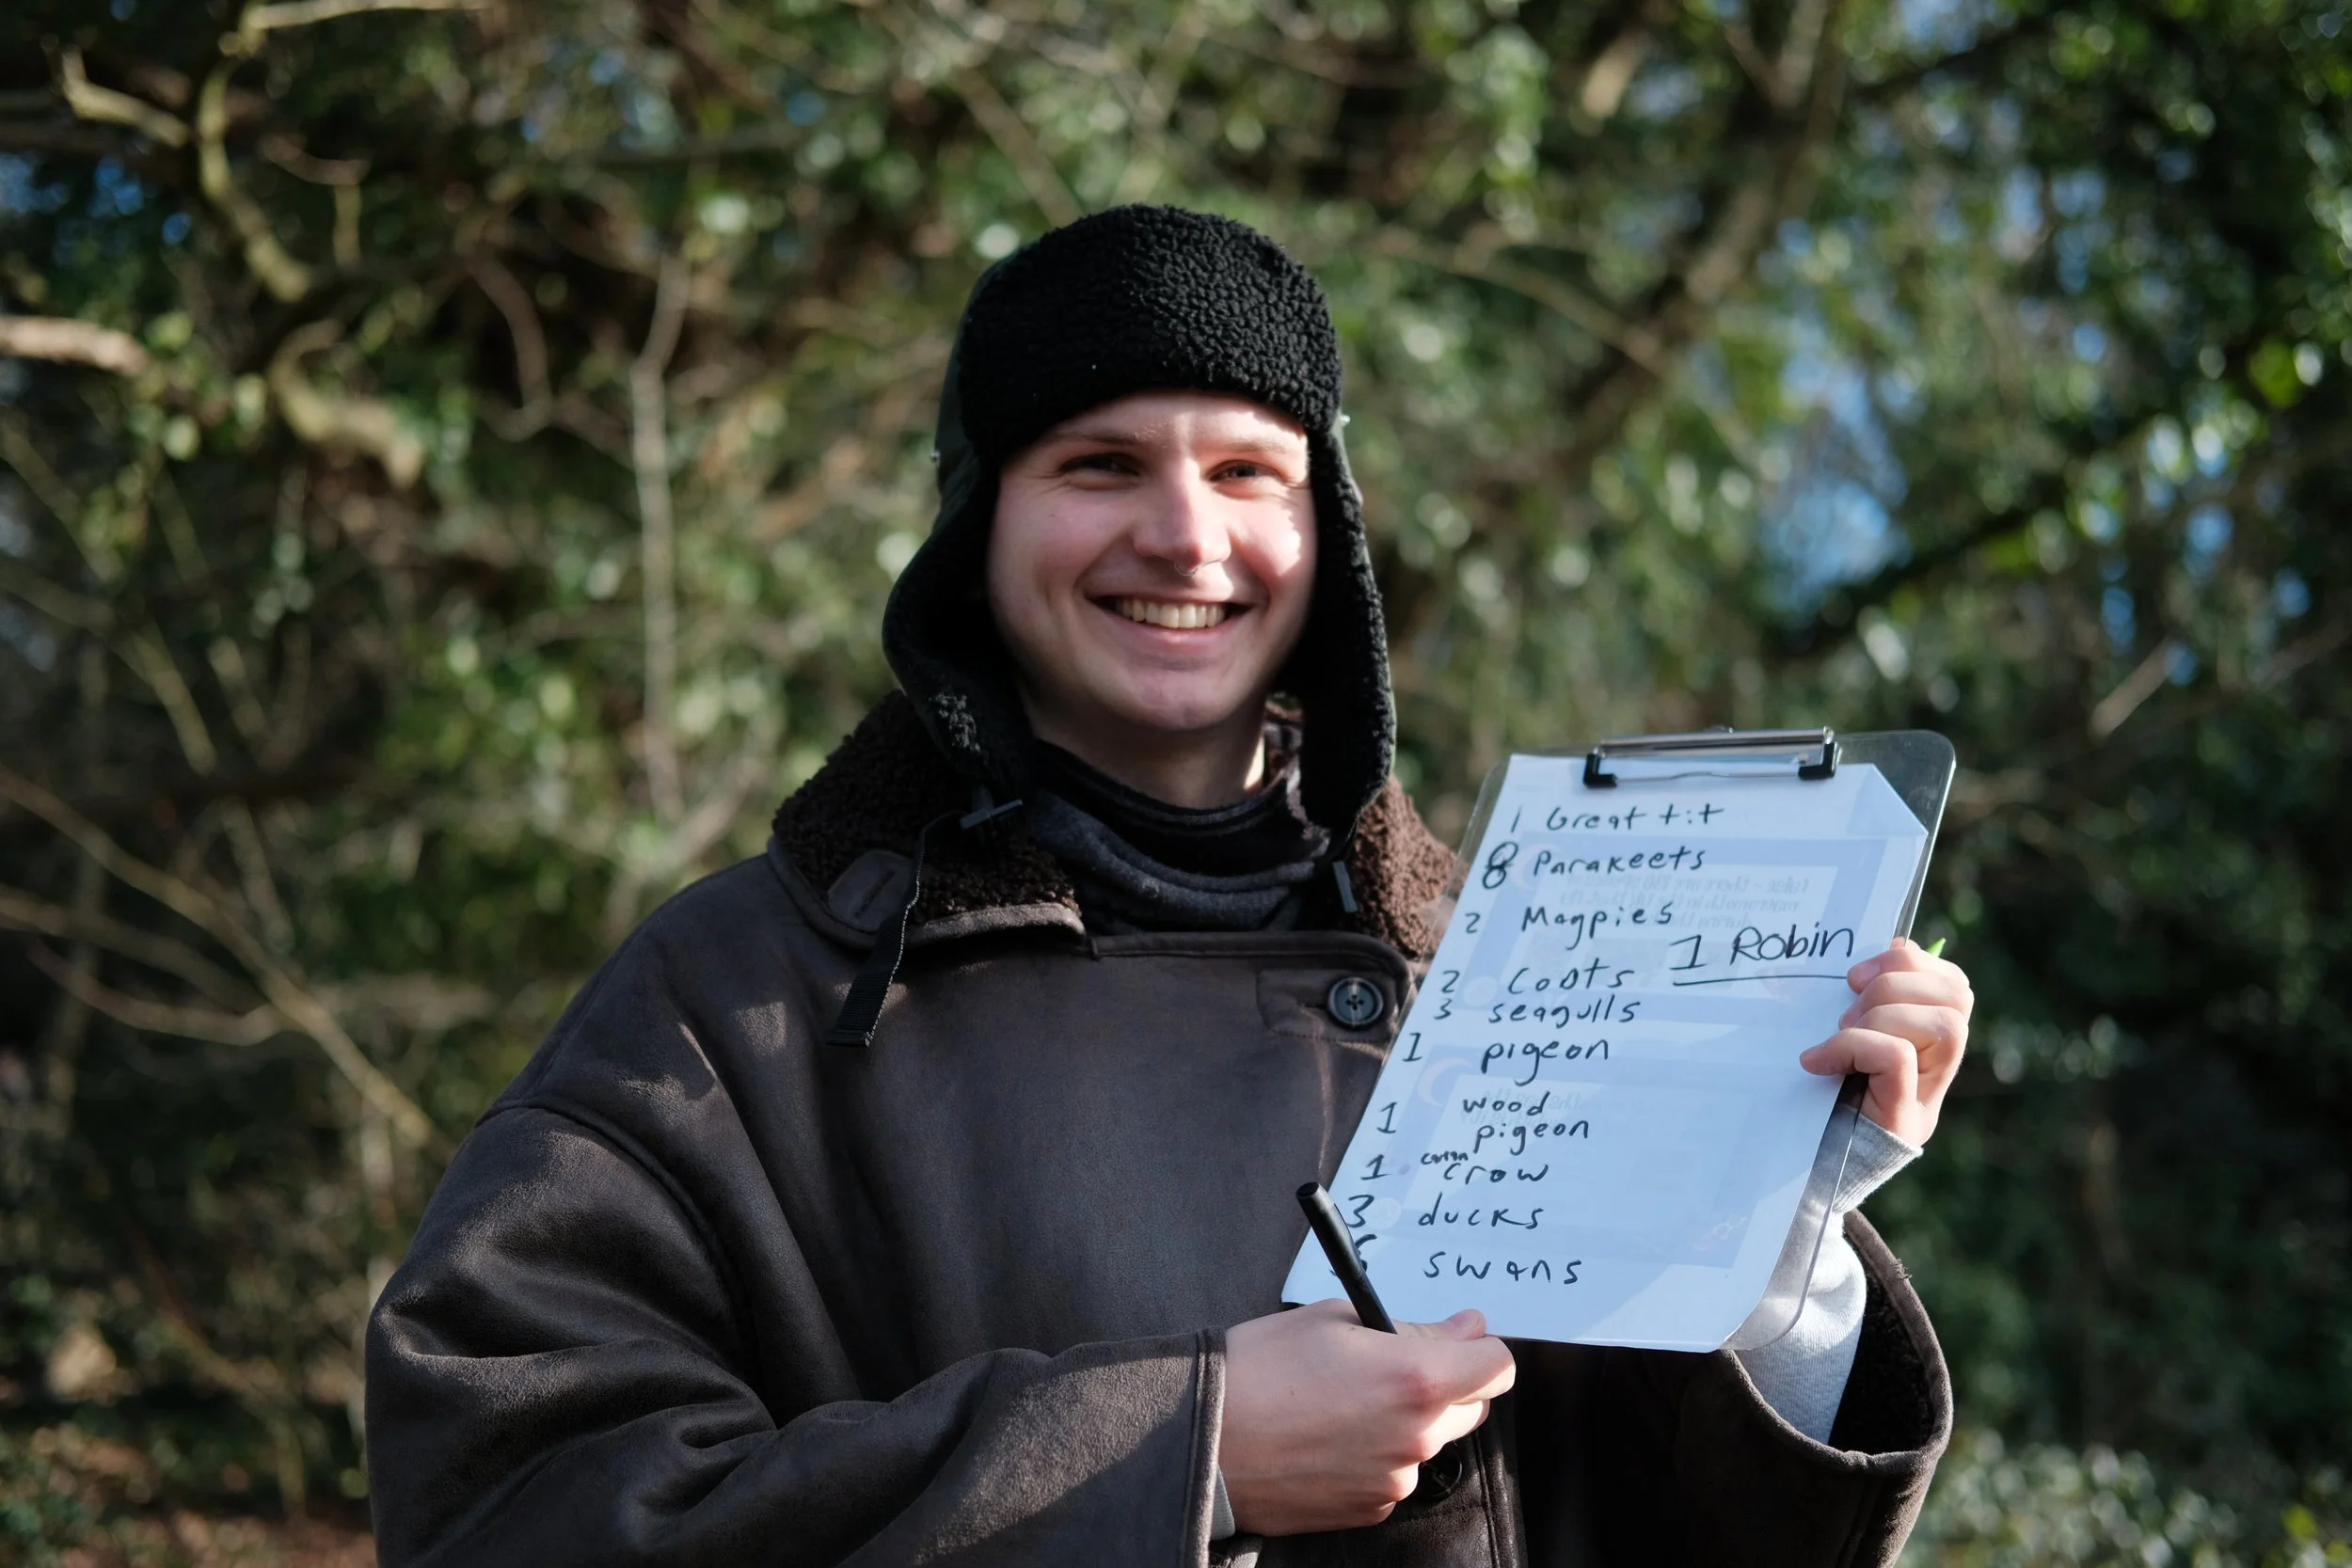 1 Great tit
8 Parakeets
2 Magpies
1 Robin
2 Coots
3 seagulls
1 pigeon
1 wood
pigeon
1 crow
3 ducks
swans